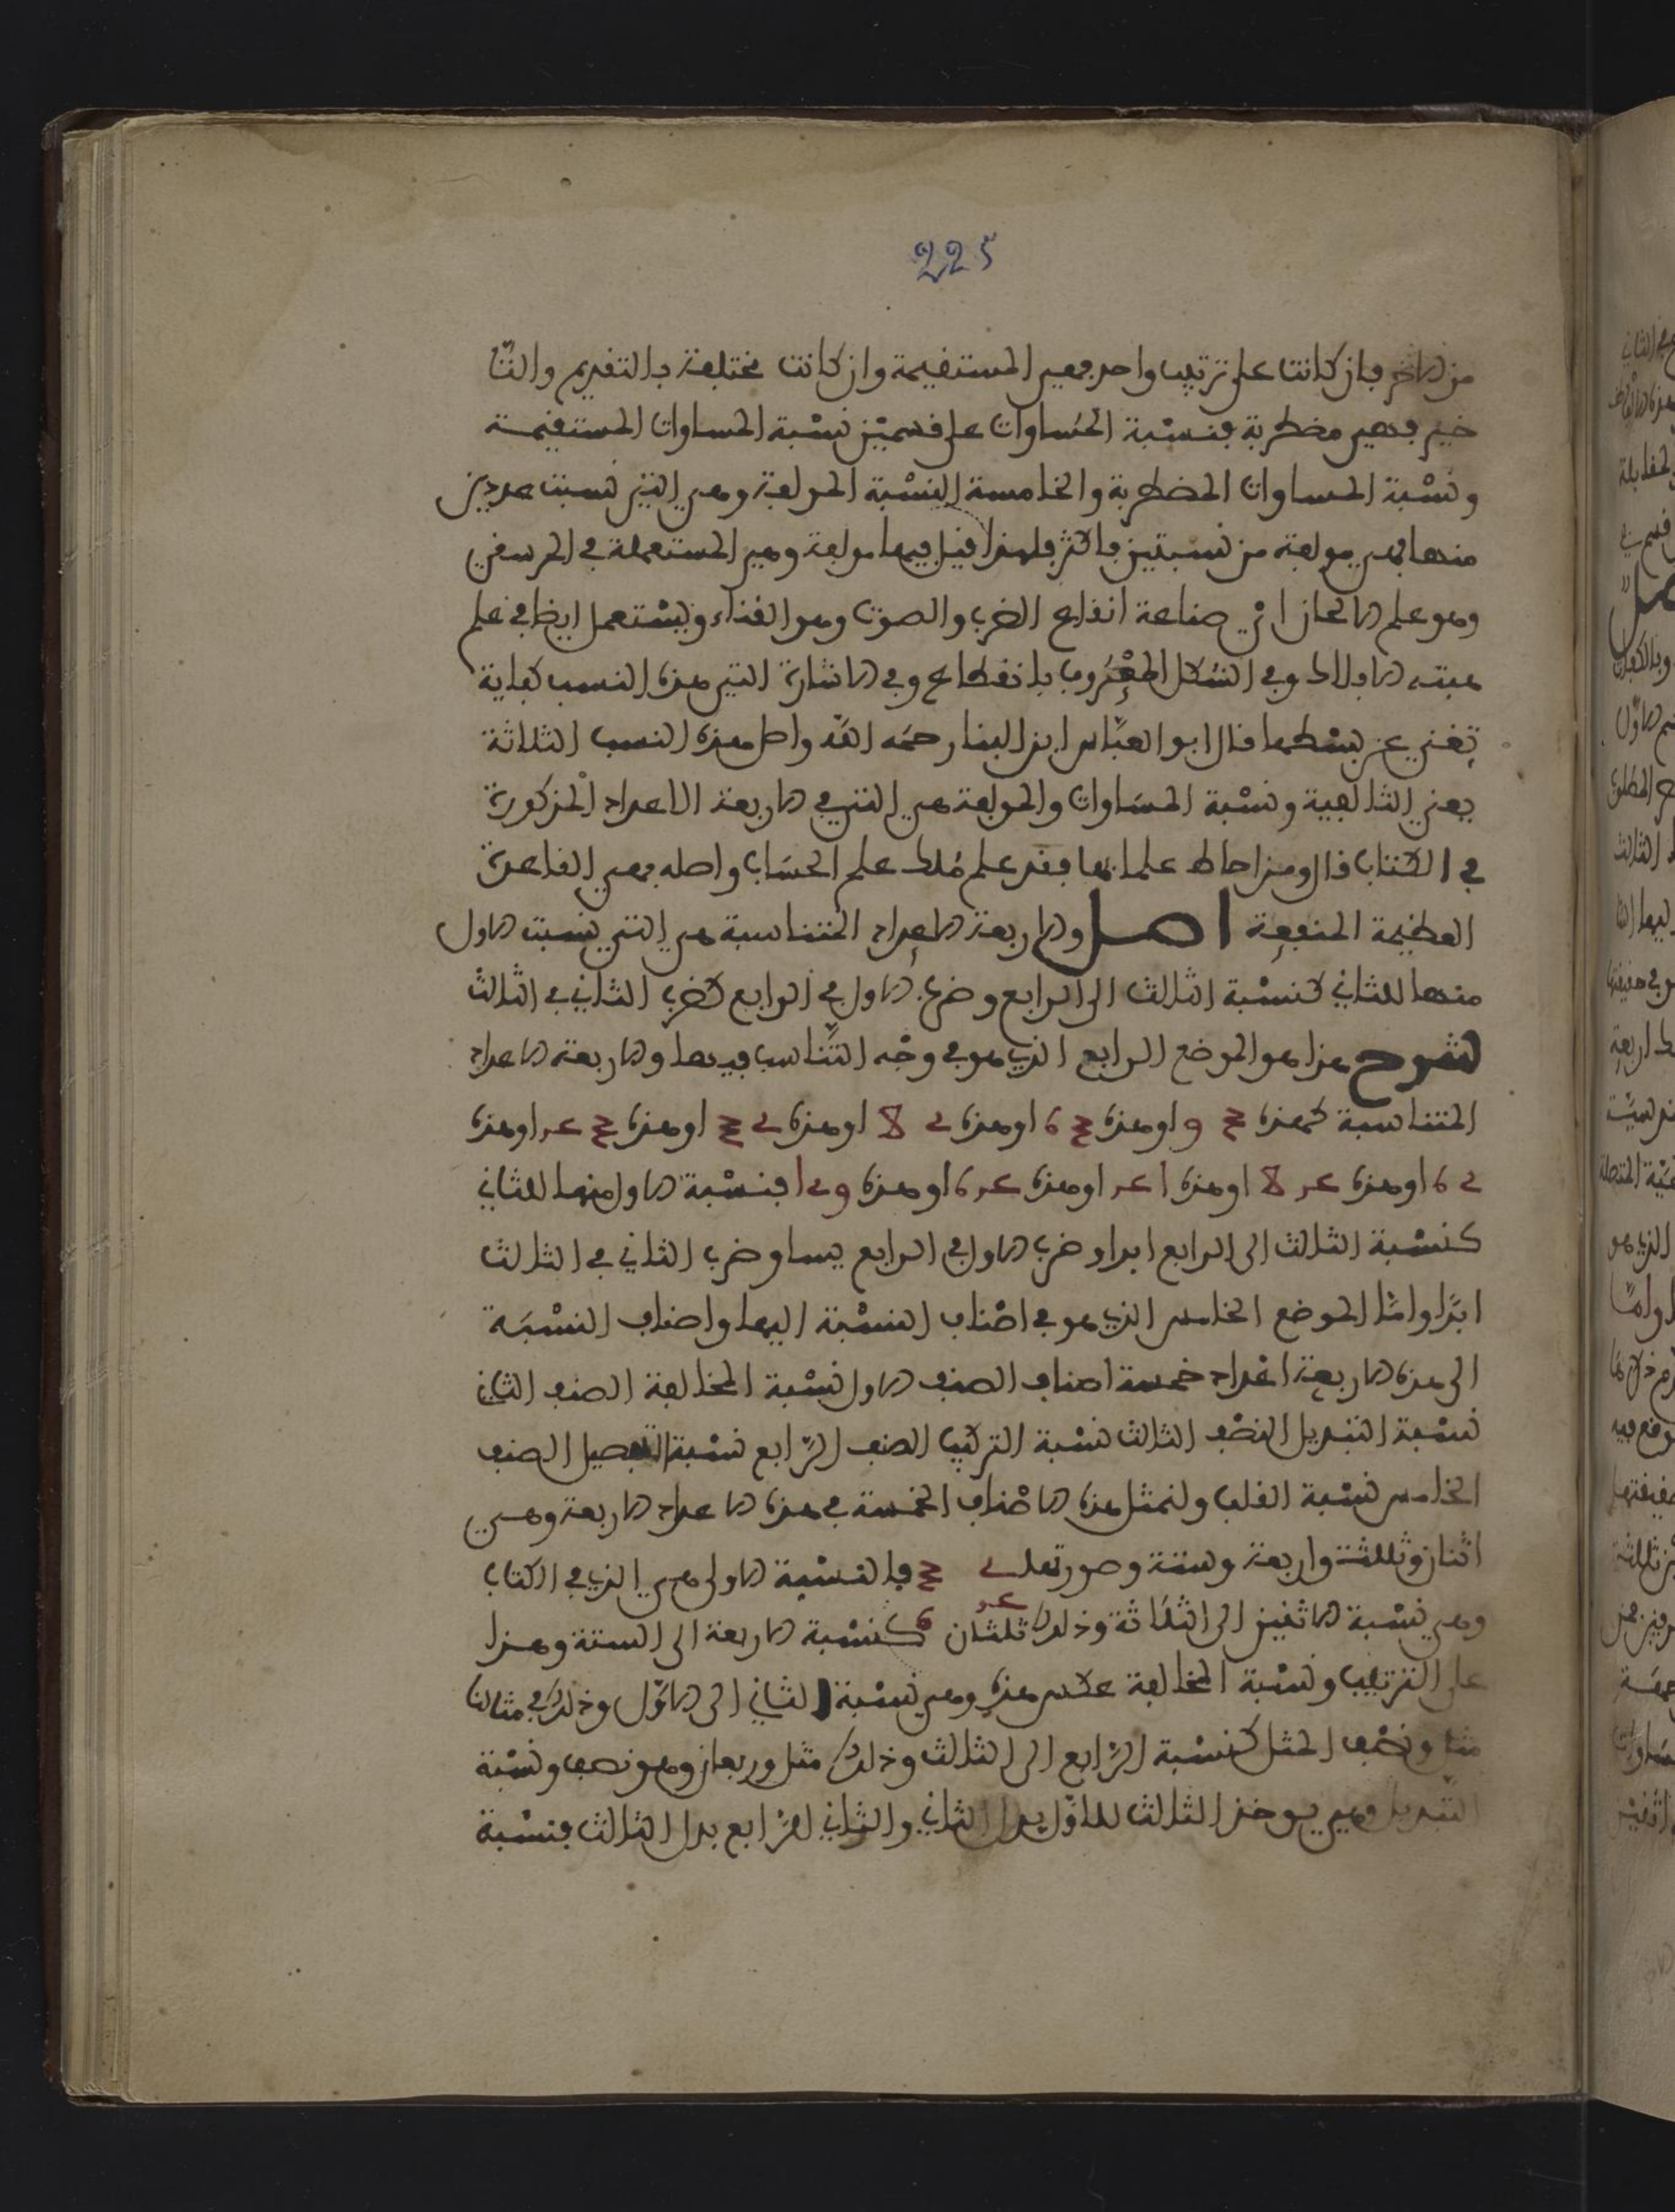 225
من الاخر فان كانت على ترتيب واحد فهي المستقيمة وان كانت مختلفة بالتقديم والتا
خير فهي مضطربة فنسبة المساوات على قسمين نسبة المساوات المستقيمة
ونسبة المساوات المضطربة والخامسة النسبة المولفة وهي التي نسبت عددين
منها فهي مولفة من نسبتين فاكثر فلهذا قيل فيها مولفة وهي المستعملة في الموسقي
وهو علم الالحان اي صناعة انقاع الضرب والصوت وهو الغناء ويستعمل ايضا في علم
هيئة الافلاك وفي الشكل المعروف بانقطاع وفي الاشارة التي هذه النسب كفاية
تغني عن بسطها قال ابو العباس ابن البنا رحمه الله واصل هذه النسب الثلاثة
يعني التالفية ونسبة المساوات والمولفة هي التي في الاربعة الاعداد المذكورة
في الكتاب قال ومن احاط علما بها فقد علم ملك علم الحساب واصله فهي القاعدة
العظيمة المنفعة اصل والاربعة الاعداد المتناسبة هي التي نسبت الاول
منها للثاني كنسبة الثالث الى الرابع وضرب الاول في الرابع كضرب الثاني في الثالث
شرح هذا هو الموضع الرابع الذي هو في وجه التناسب فيها والاربعة الاعداد
المتناسبة كهذه او هذه او هذه او هذه او هذه او هذه
او هذه او هذه او هذه او هذه فنسبة الاول منها للثاني
كنسبة الثالث الى الرابع ابدا وضرب الاول في الرابع يساو ضرب الثاني في الثالث
ابدا واما الموضع الخامس الذي هو في اصناف النسبة اليها واصناف النسبة
الى هذه الاربعة اعداد خمسة اصناف الصنف الاول نسبة المخالفة الصنف الثاني
نسبة التبديل الصنف الثالث نسبة التركيب الصنف الرابع نسبة التفصيل الصنف
الخامس نسبة القلب ولنمثل هذه الاصناف الخمسة في هذه الاعداد الاربعة وهي
اثنان وثلثة واربعة وستة وصورتها فالنسبة الاولى هي الذي في الكتاب
وهي نسبة الاثنين الى الثلاثة وذلك ثلثان كنسبة الاربعة الى الستة وهذا
على الترتيب ونسبة المخالفة عكس هذه وهي نسبة الثاني الى الاول وذلك في مثالنا
مثل ونصف المثل كنسبة الرابع الى الثالث وذلك مثل وربعان وهو نصف ونسبة
التبديل وهي يوخذ الثالث للاول بدل الثاني والثاني للرابع بدل الثالث فنسبة